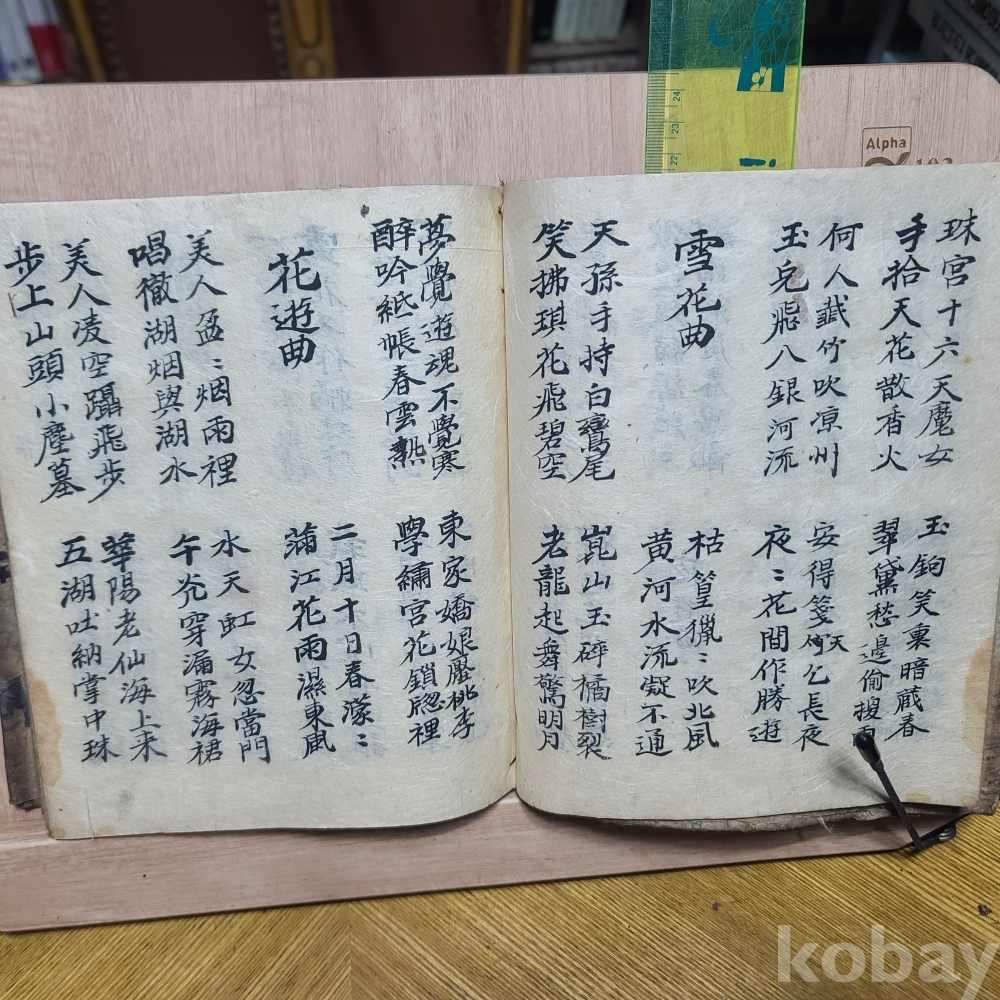 珠宮十六天魔女
手拾天花散香火
玉鉤笑稟暗藏春
翠黛愁邊偷
何人截竹吹凉州
玉皃飛八銀河流
安得箋何天乞長夜
夜〻花間作勝遊
雪花曲
枯篁獵〻吹北風
黄河水流凝不通
天孫手持白鸞尾
笑拂琪花飛碧空
崑山玉碎橘樹裂
老龍起舞驚明月
夢覺遊魂不覺寒
醉吟紙帳春雲熱
東家嬌娘壓桃李
學繡宮花鎖窓裡
花遊曲
二月十日春濛〻
蒲江花雨濕東風
美人盈〻烟雨裡
唱徹湖烟與湖水
水天虹女忽當門
午光穿漏霧海裙
美人凌空躡飛步
步上山頭小塵墓
華陽老仙海上来
五湖吐納掌中珠
Alpha
24
23
22
kobay